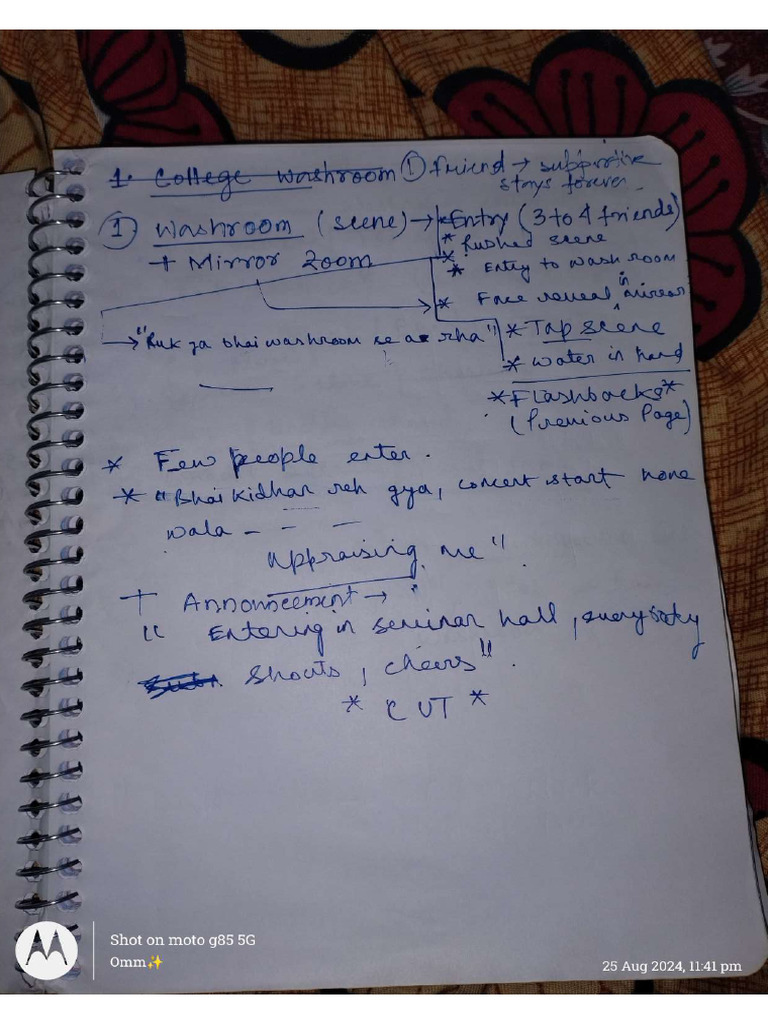 1. College washroom ① friend → supportive
stays forever.
① Washroom (scene) → *Entry (3 to 4 friends)
* Rushed scene
+ Mirror zoom
* Entry to wash room
* Face reveal in mirror
→ "Ruk ja bhai washroom se aa rha"
* Tap scene
* water in hand
*Flashbacks*
(Previous Page)
* Few people enter.
* "Bhai kidhar reh gya, concert start hone
wala - - -
appraising me".
+ Announcement →
" Entering in seminar hall, everybody
shouts, cheers".
* CUT *
Shot on moto g85 5G
Omm✨
25 Aug 2024, 11:41 pm